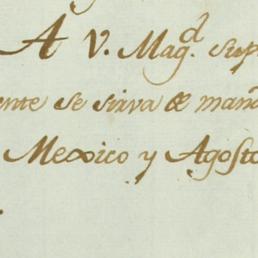 A V. Mag.d Sup
ente se sirva de man
Mexico y Agosto